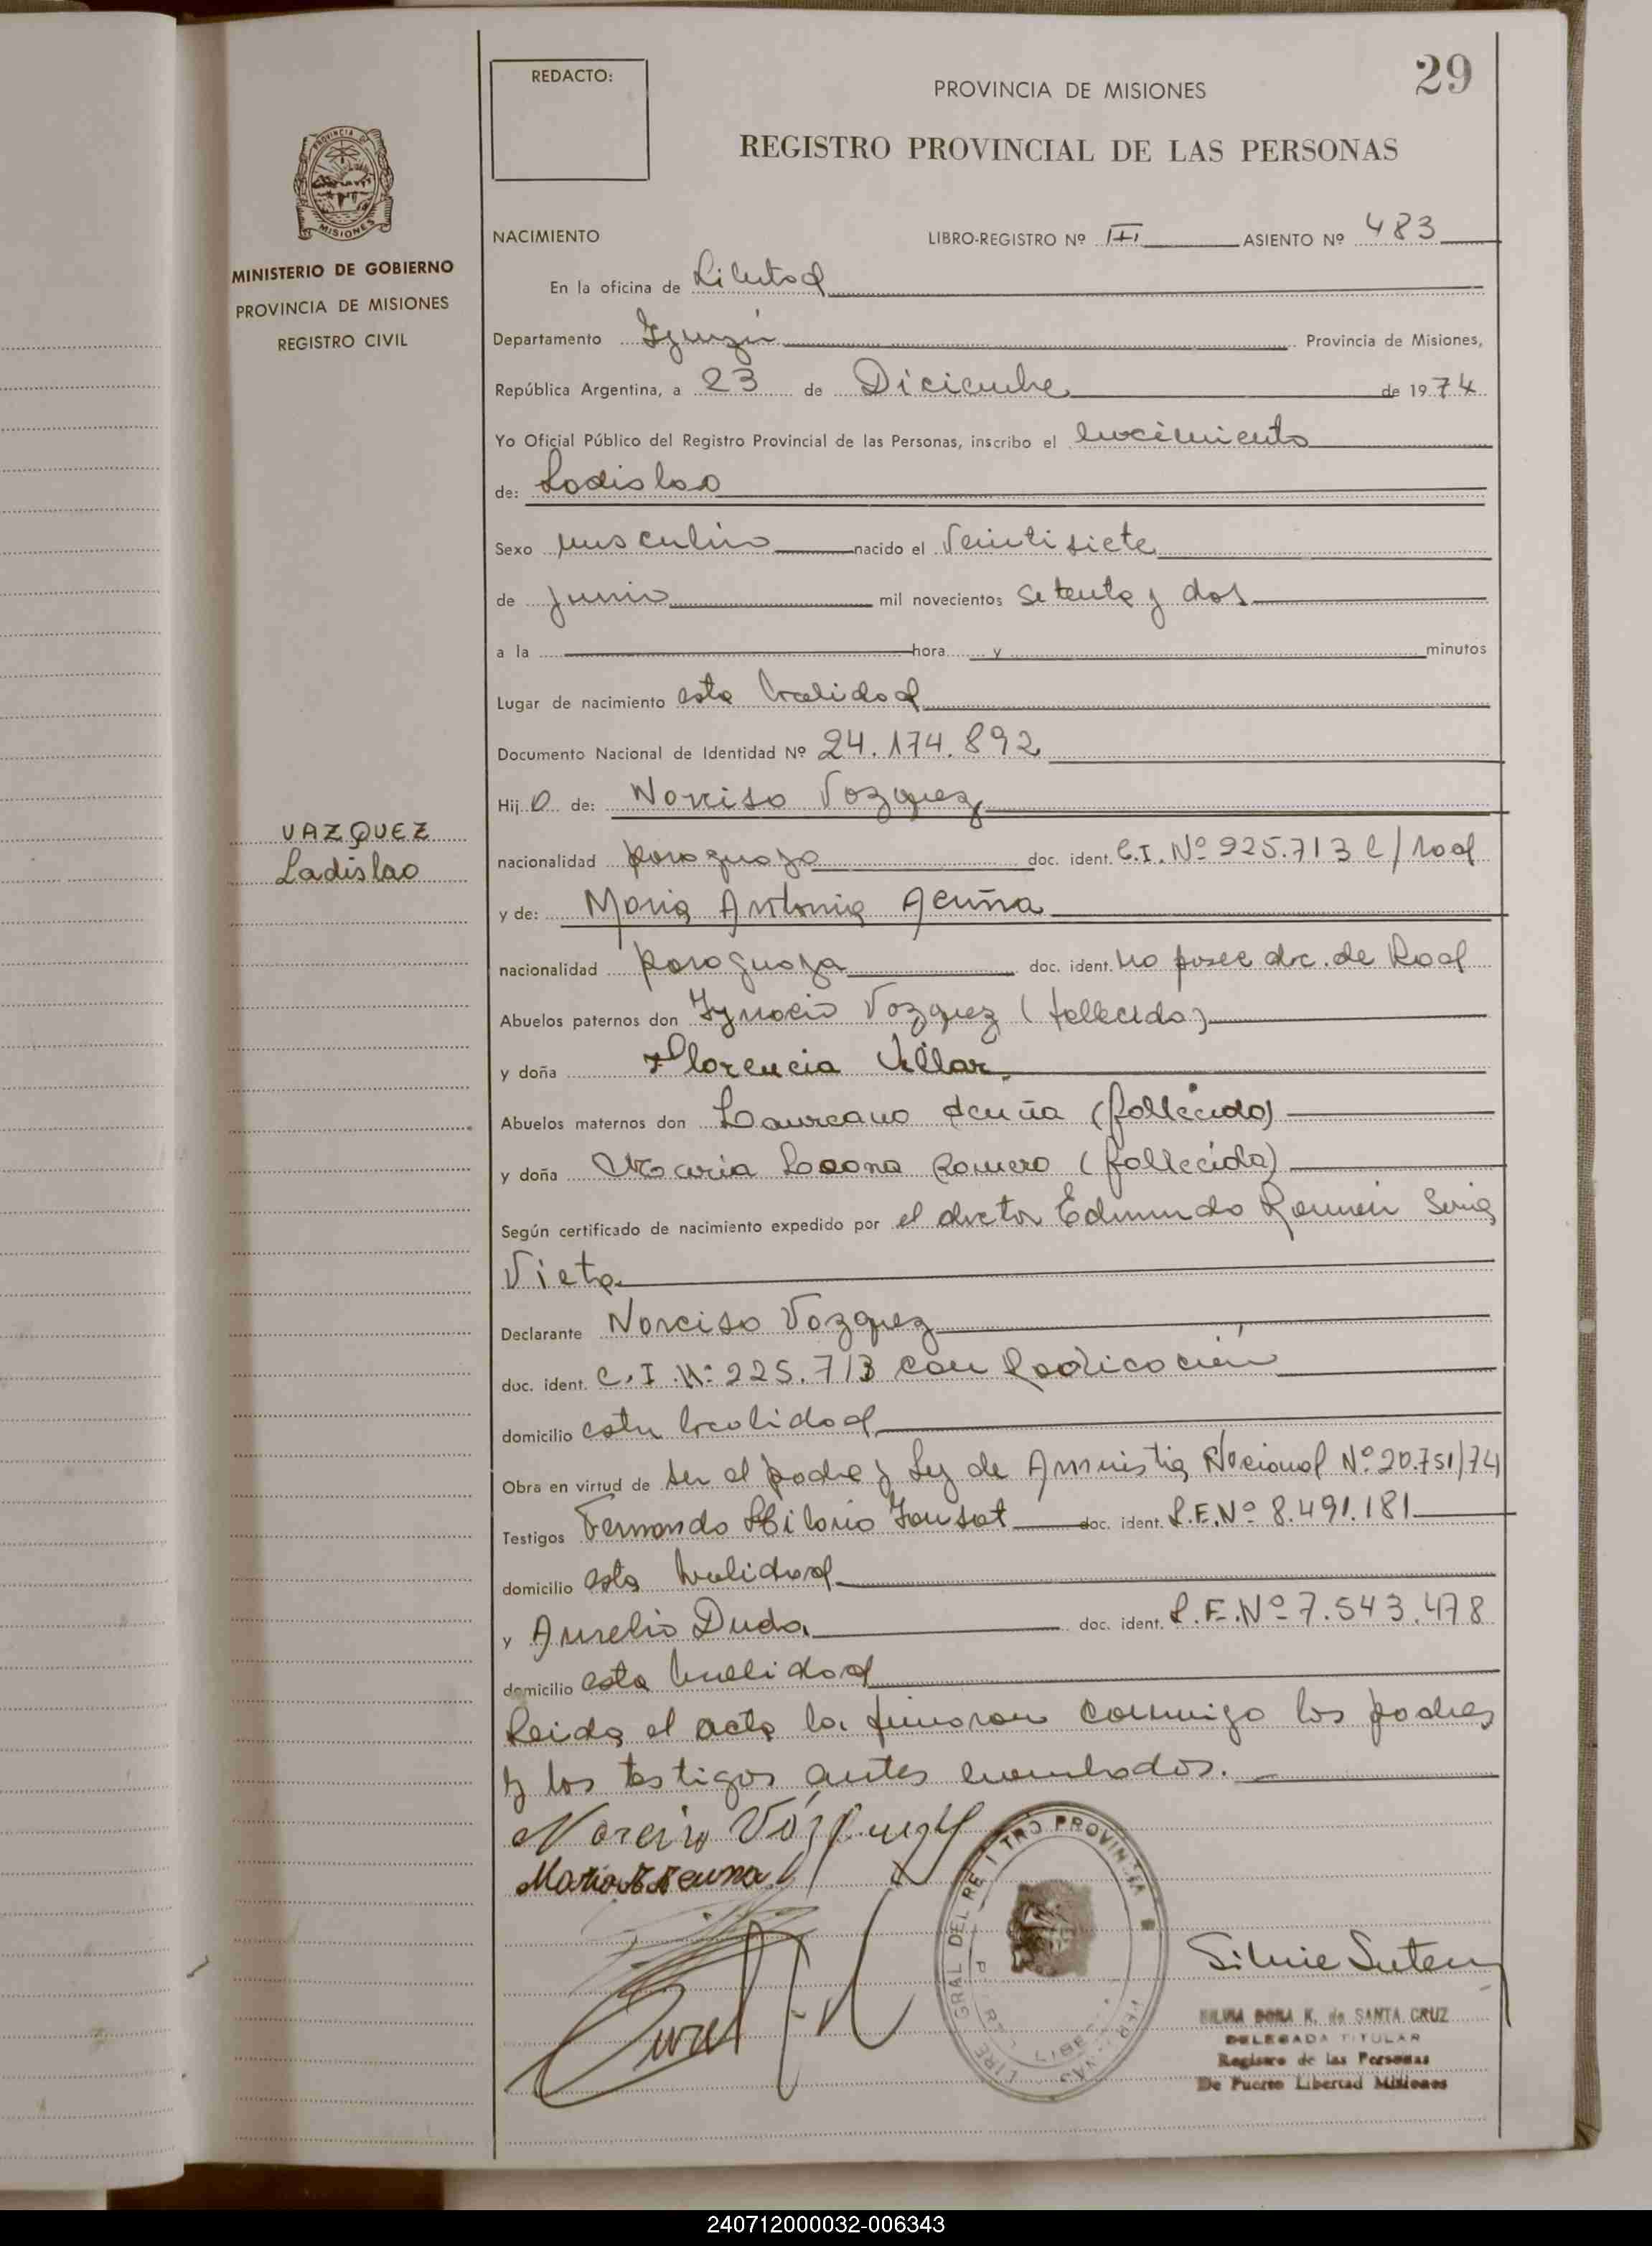 REDACTO:
PROVINCIA DE MISIONES
29
REGISTRO PROVINCIAL DE LAS PERSONAS
PROVINCIA DE
MISIONES
MINISTERIO DE GOBIERNO
PROVINCIA DE MISIONES
REGISTRO CIVIL
NACIMIENTO LIBRO-REGISTRO Nº III ASIENTO Nº 483
En la oficina de Libertad
Departamento Iguazú Provincia de Misiones,
República Argentina, a 23 de Diciembre de 1974
Yo Oficial Público del Registro Provincial de las Personas, inscribo el nacimiento
de: Ladislao
Sexo masculino nacido el Veintisiete
de junio mil novecientos setenta y dos
a la hora y minutos
Lugar de nacimiento esta localidad
Documento Nacional de Identidad Nº 24.174.892
Hij o de: Narciso Vazquez
VAZQUEZ
Ladislao
nacionalidad paraguayo doc. ident. C.I. Nº 925.713 c/rad
y de: Maria Antonia Acuña
nacionalidad paraguaya doc. ident. no posee doc. de Rad
Abuelos paternos don Ignacio Vazquez (fallecido)
y doña Florencia Villar
Abuelos maternos don Laureano Acuña (fallecido)
y doña Maria Romero (fallecida)
Según certificado de nacimiento expedido por el doctor Edmundo Ramón
Vieta
Declarante Narciso Vazquez
doc. ident. C.I. Nº 225.713 con Radicación
domicilio esta localidad
Obra en virtud de ser el padre y Ley de Amnistia Nacional Nº 20.751/74
Testigos Fernando Hilario doc. ident. L.E. Nº 8.491.181
domicilio esta localidad
y Aurelio Duda doc. ident. L.E. Nº 7.543.478
domicilio esta localidad
Leida el acta la firmaron conmigo los padres
y los testigos antes nombrados.
Narciso Vázquez
Maria A Acuna
GRAL DEL RE
TRO PROVIN
SILVIA DORA K. de SANTA CRUZ
DELEGADA TITULAR
Registro de las Personas
De Puerto Libertad Misiones
240712000032-006343